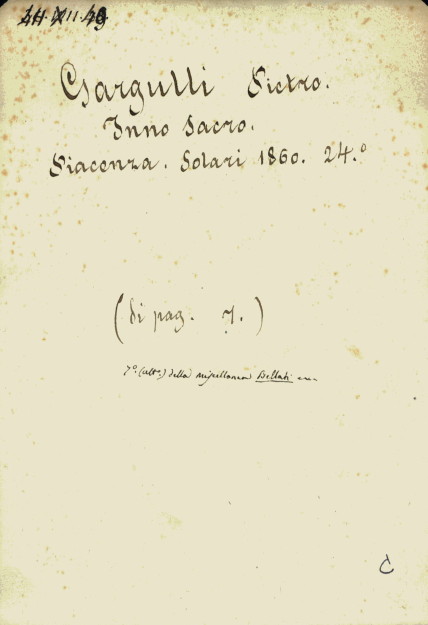 Gargulli Pietro.
Inno Sacro.
Piacenza. Solari 1860. 24.º
(di pag. 7.)
7º. (ult.º) della miscellanea Bellati
C